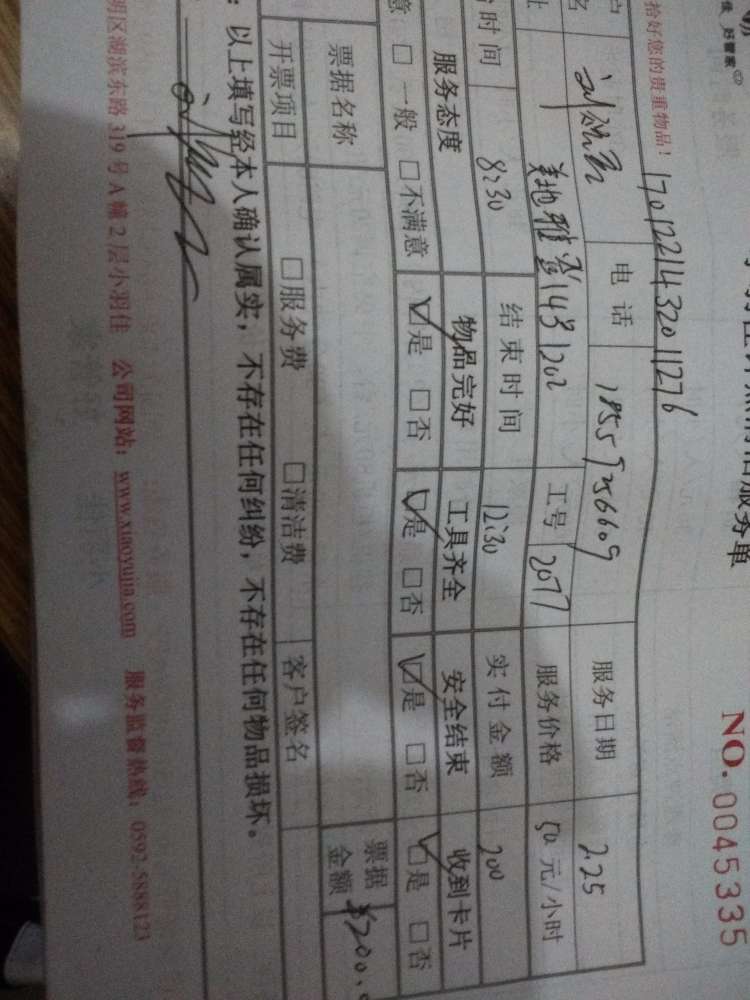 服务单
NO. 0045335
拾好您的贵重物品！
1701221432011276
电话 18559256609 服务日期 2.25
美地雅登143 1202 工号 2077 服务价格 50元/小时
时间 8:30 结束时间 12:30 实付金额 200
服务态度 物品完好 工具齐全 安全结束 收到卡片
意 □一般 □不满意 ☑是 □否 ☑是 □否 ☑是 □否 ☑是 □否
票据名称 票据金额 ¥200.
开票项目 □服务费 □清洁费 客户签名
：以上填写经本人确认属实，不存在任何纠纷，不存在任何物品损坏。
明区湖滨东路319号A幢2层小羽佳 公司网站：www.xiaoyujia.com 服务监督热线：0592-5888123